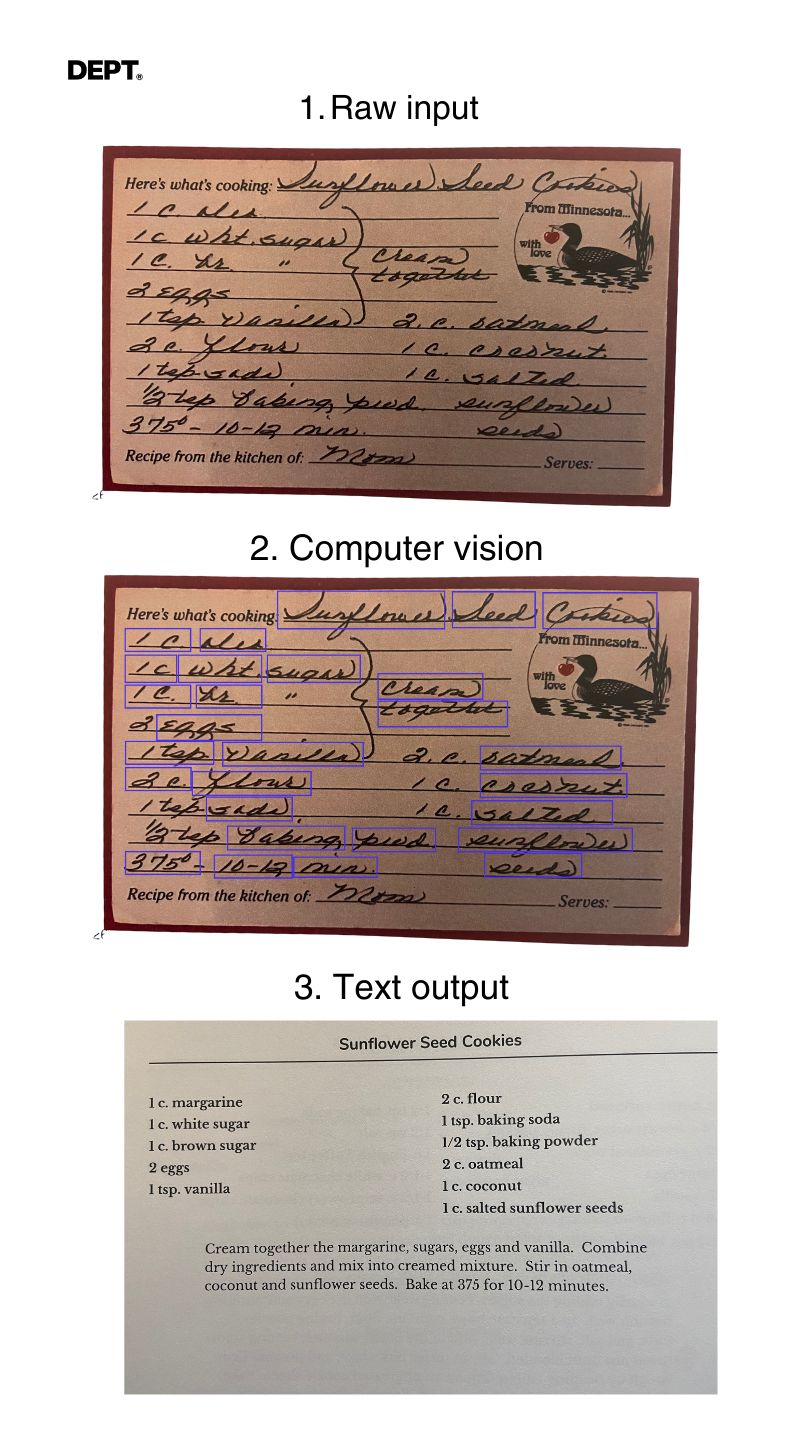 DEPT®
1. Raw input
Here's what's cooking: Sunflower Seed Cookies
1 c. oleo
From Minnesota...
1 c wht. sugar
with love
1 c. br. "
cream together
2 eggs
1 tsp vanilla 2. c. oatmeal
2 c. flour 1 c. coconut.
1 tsp soda. 1 c. salted
1/2 tsp baking powd. sunflower
375° - 10-12 min. seeds
Recipe from the kitchen of: Mom Serves:
2. Computer vision
Here's what's cooking: Sunflower Seed Cookies
1 c. oleo
From Minnesota...
1 c wht. sugar
with love
1 c. br. "
cream together
2 eggs
1 tsp vanilla 2. c. oatmeal
2 c. flour 1 c. coconut.
1 tsp soda. 1 c. salted
1/2 tsp baking powd. sunflower
375° - 10-12 min. seeds
Recipe from the kitchen of: Mom Serves:
3. Text output
Sunflower Seed Cookies
1 c. margarine
1 c. white sugar
1 c. brown sugar
2 eggs
1 tsp. vanilla
2 c. flour
1 tsp. baking soda
1/2 tsp. baking powder
2 c. oatmeal
1 c. coconut
1 c. salted sunflower seeds
Cream together the margarine, sugars, eggs and vanilla. Combine
dry ingredients and mix into creamed mixture. Stir in oatmeal,
coconut and sunflower seeds. Bake at 375 for 10-12 minutes.